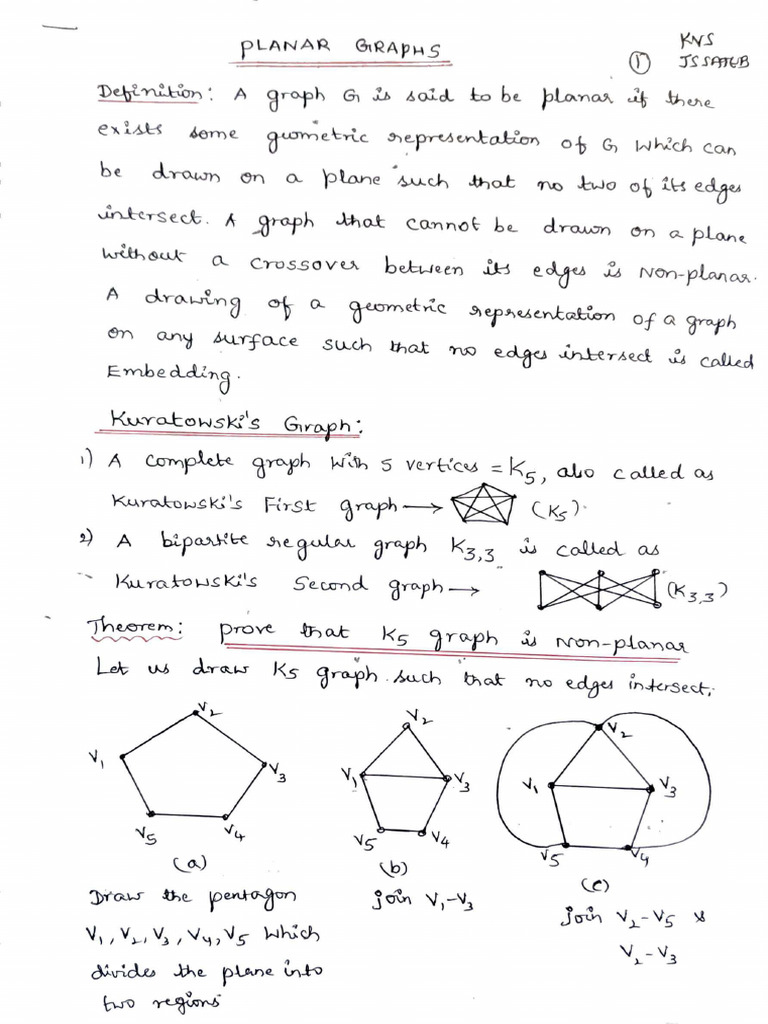 PLANAR GRAPHS
KNS
① JSSATEB
Definition: A graph G is said to be planar if there
exists some geometric representation of G which can
be drawn on a plane such that no two of its edges
intersect. A graph that cannot be drawn on a plane
without a crossover between its edges is Non-planar.
A drawing of a geometric representation of a graph
on any surface such that no edges intersect is called
Embedding.
Kuratowski's Graph:
1) A complete graph with 5 vertices = K5, also called as
Kuratowski's First graph → (K5).
2) A bipartite regular graph K3,3 is called as
Kuratowski's Second graph → (K3,3)
Theorem: prove that K5 graph is Non-planar
Let us draw K5 graph such that no edges intersect.
V2 V2 V2
V1 V3 V1 V3 V1 V3
V5 V4 V5 V4 V5 V4
(a) (b) (c)
Draw the pentagon
V1, V2, V3, V4, V5 which
divides the plane into
two regions
join V1-V3
join V2-V5 &
V2-V3